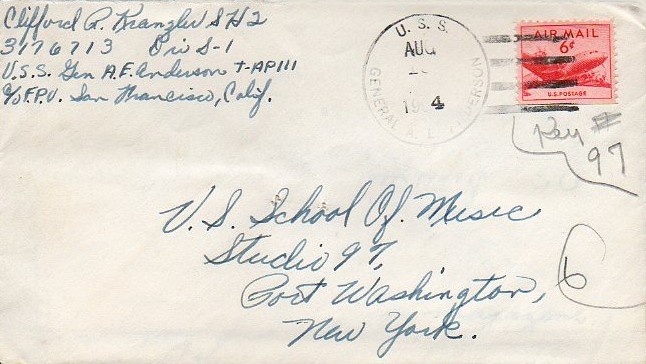 Clifford R. Kranzler SH2
3176713 Div S-1
U.S.S. Gen A.E. Anderson T-AP111
c/o F.P.O. San Francisco, Calif.
U. S. S.
AUG
GENERAL A. E. ANDERSON
AIR MAIL
6¢
U.S. POSTAGE
Key #
97
U.S. School Of. Music
Studio 97,
Port Washington,
New York.
6